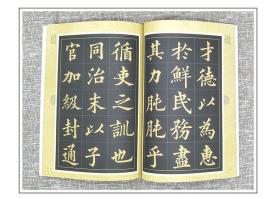 才德以為惠
於鮮民務盡
其力肫肫乎
循吏之訓也
同治末以子
官加級封通